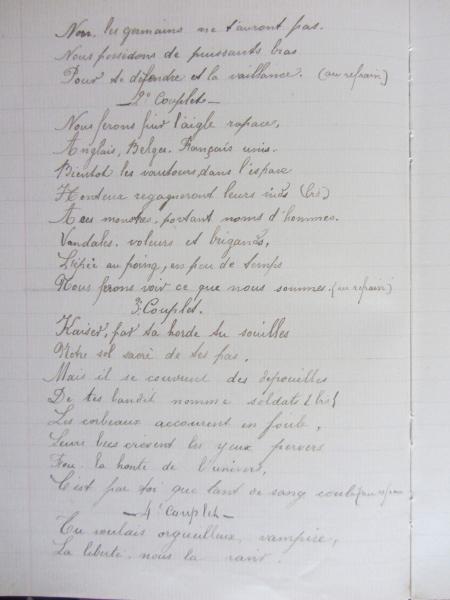 Non. les germains ne t'auront pas.
Nous possédons de puissants bras
Pour te défendre et la vaillance. (au refrain)
2e Couplet
Nous ferons fuir l'aigle rapace,
Anglais, Belges. Français unis.
Bientôt les vautours, dans l'espace
Honteux regagneront leurs nids (bis)
A ces monstres, portant noms d'hommes.
Vandales. voleurs et brigands,
L'épée au poing, en peu de temps
Nous ferons voir ce que nous sommes. (au refrain)
3e Couplet.
Kaiser, par ta horde tu souilles
Notre sol sacré de tes pas.
Mais il se couvrent des dépouilles
De tes bandit nommé soldats (bis)
Les corbeaux accourent en foule,
Leurs becs crèvent les yeux pervers
la honte de l'univers,
C'est par toi que tant de sang coule (au refrain)
4e Couplet
Tu voulais orgueilleux, vampire,
La liberté. nous la ravir.